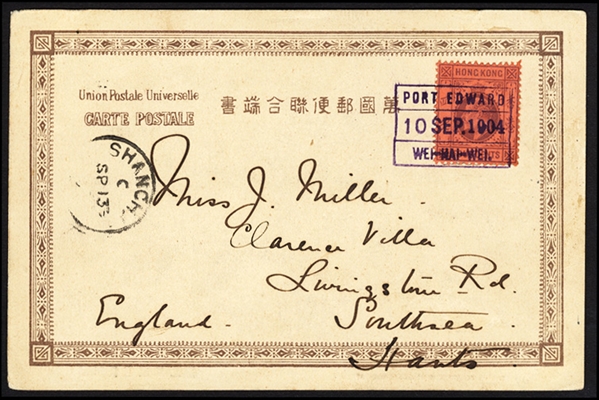 HONG KONG
PORT EDWARD
10 SEP. 1904
WEI-HAI-WEI.
CENTS
Union Postale Universelle
CARTE POSTALE
書端合聯便郵國萬
SHANGH
C
SP 13
Miss J. Miller.
Clarence Villa
Livingstone Rd.
England. Southsea
Hants.